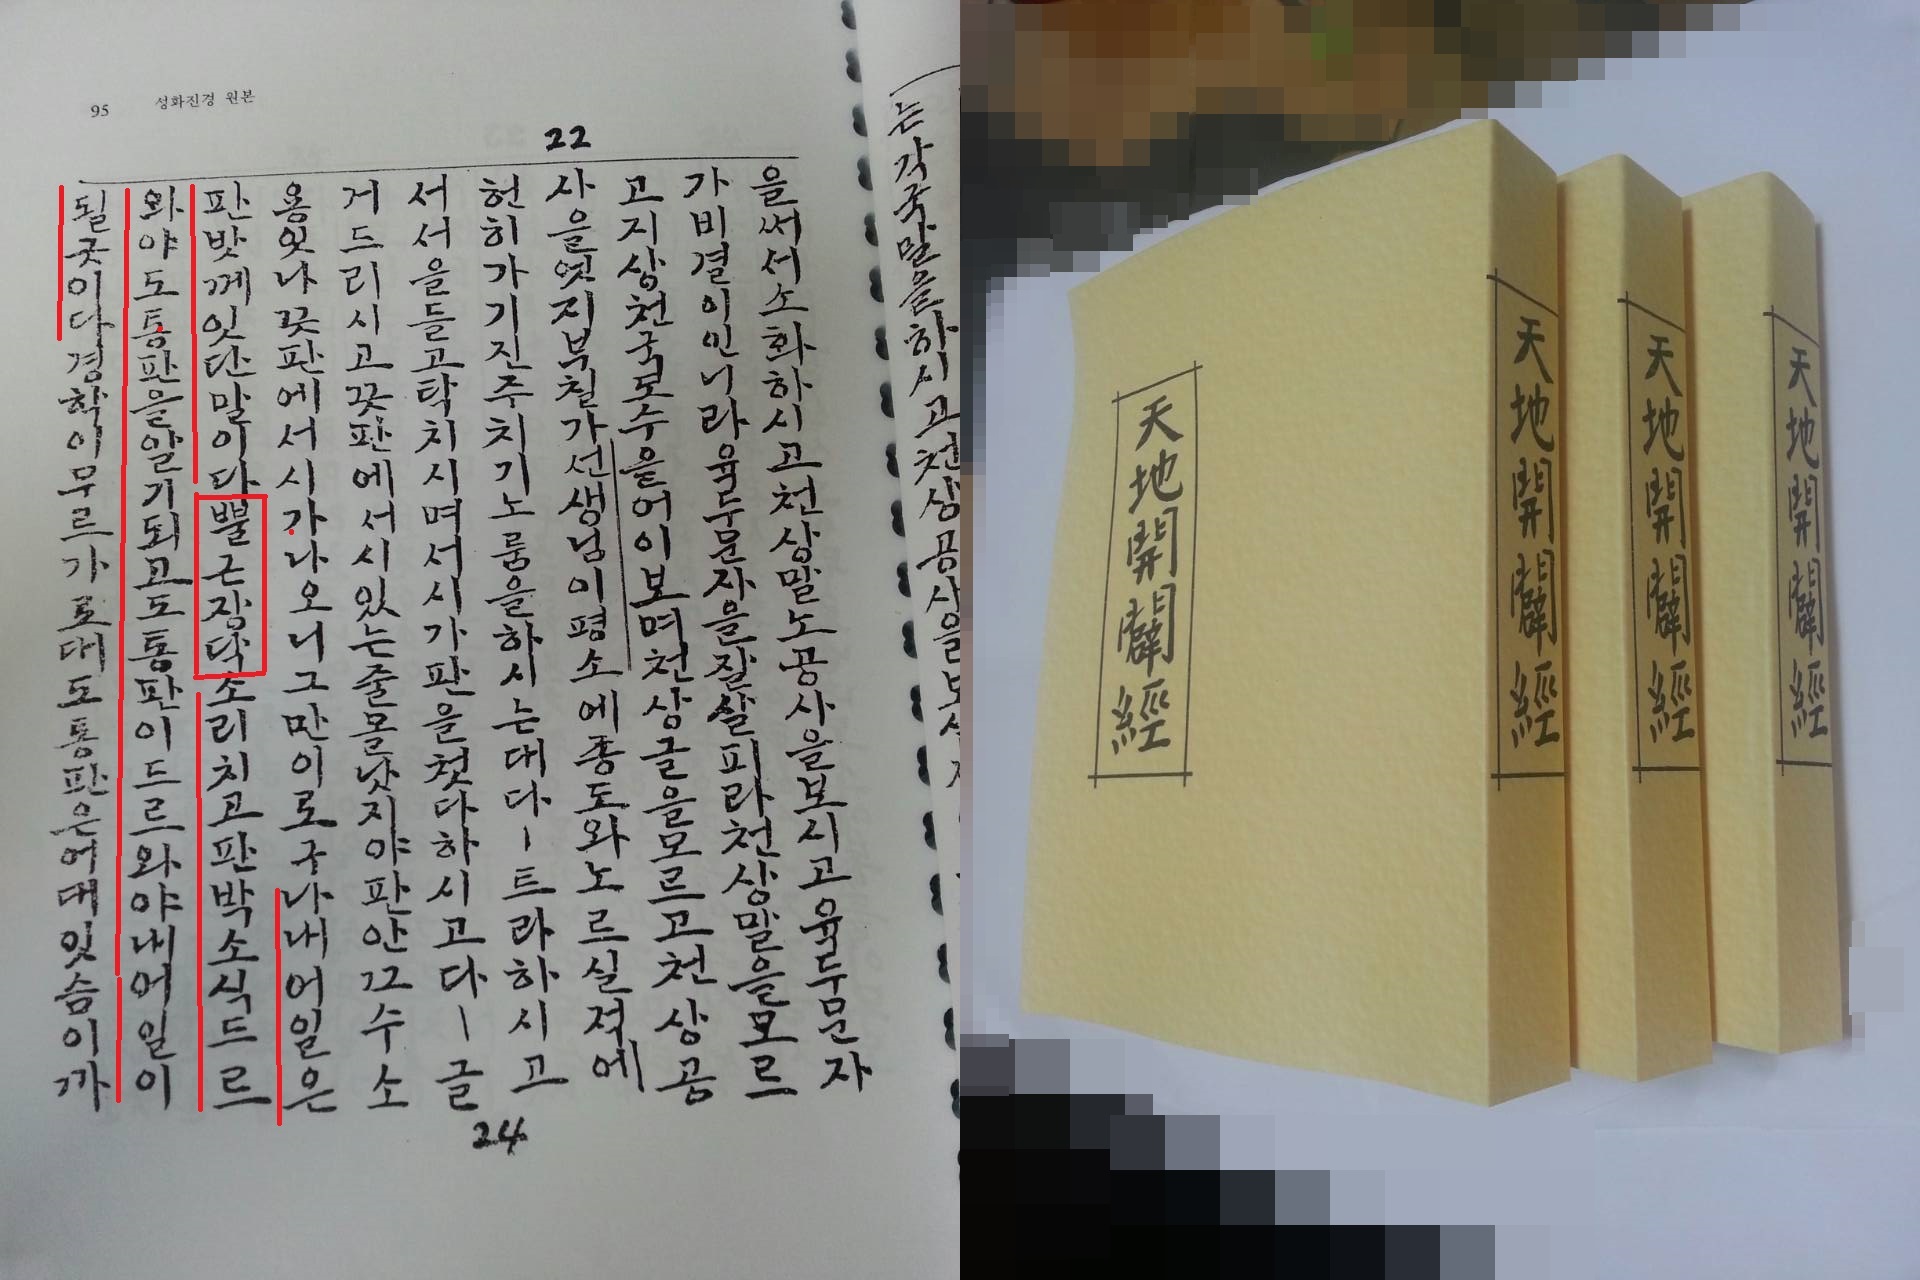 95 성화진경 원본
22
을써서소화하시고천상말노공사을보시고육두문자
가비결이인니라육두문자을잘살피라천상말을모르
고지상천국모수을어이보며천상글을모르고천상공
사을엿지부칠가선생님이평소에종도와노르실적에
헌히가기진주치기노룸을하시는대다ㅣ트라하시고
서서을들고탁치시며서시가판을첫다하시고다ㅣ글
거드리시고끗판에서시있는줄몰낫지야판안끄수소
용잇나끗판에서시가나오니그만이로구나내어일은
판밧께잇단말이다뿔근장닥소리치고판박소식드르
와야도통판을알기되고도통판이드르와야내어일이
될굿이다경학이무르가로대도통판은어대잇슴이까
24
는각국말을하시고천상공사을보시
天地開闢經
天地開闢經
天地開闢經
天地開闢經